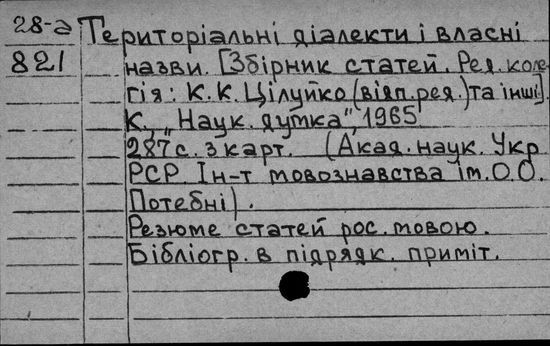 28-а Територіальні діалекти і власні
821 назви. [Збірник статей. Ред. коле-
гія: К.К.Цілуйко (відп.ред.) та інші].
К., „Наук. думка", 1965
287с. з карт. (Акад. наук. Укр
РСР. Ін-т мовознавства ім. О.О.
Потебні).
Резюме статей рос. мовою.
Бібліогр. в підрядк. приміт.